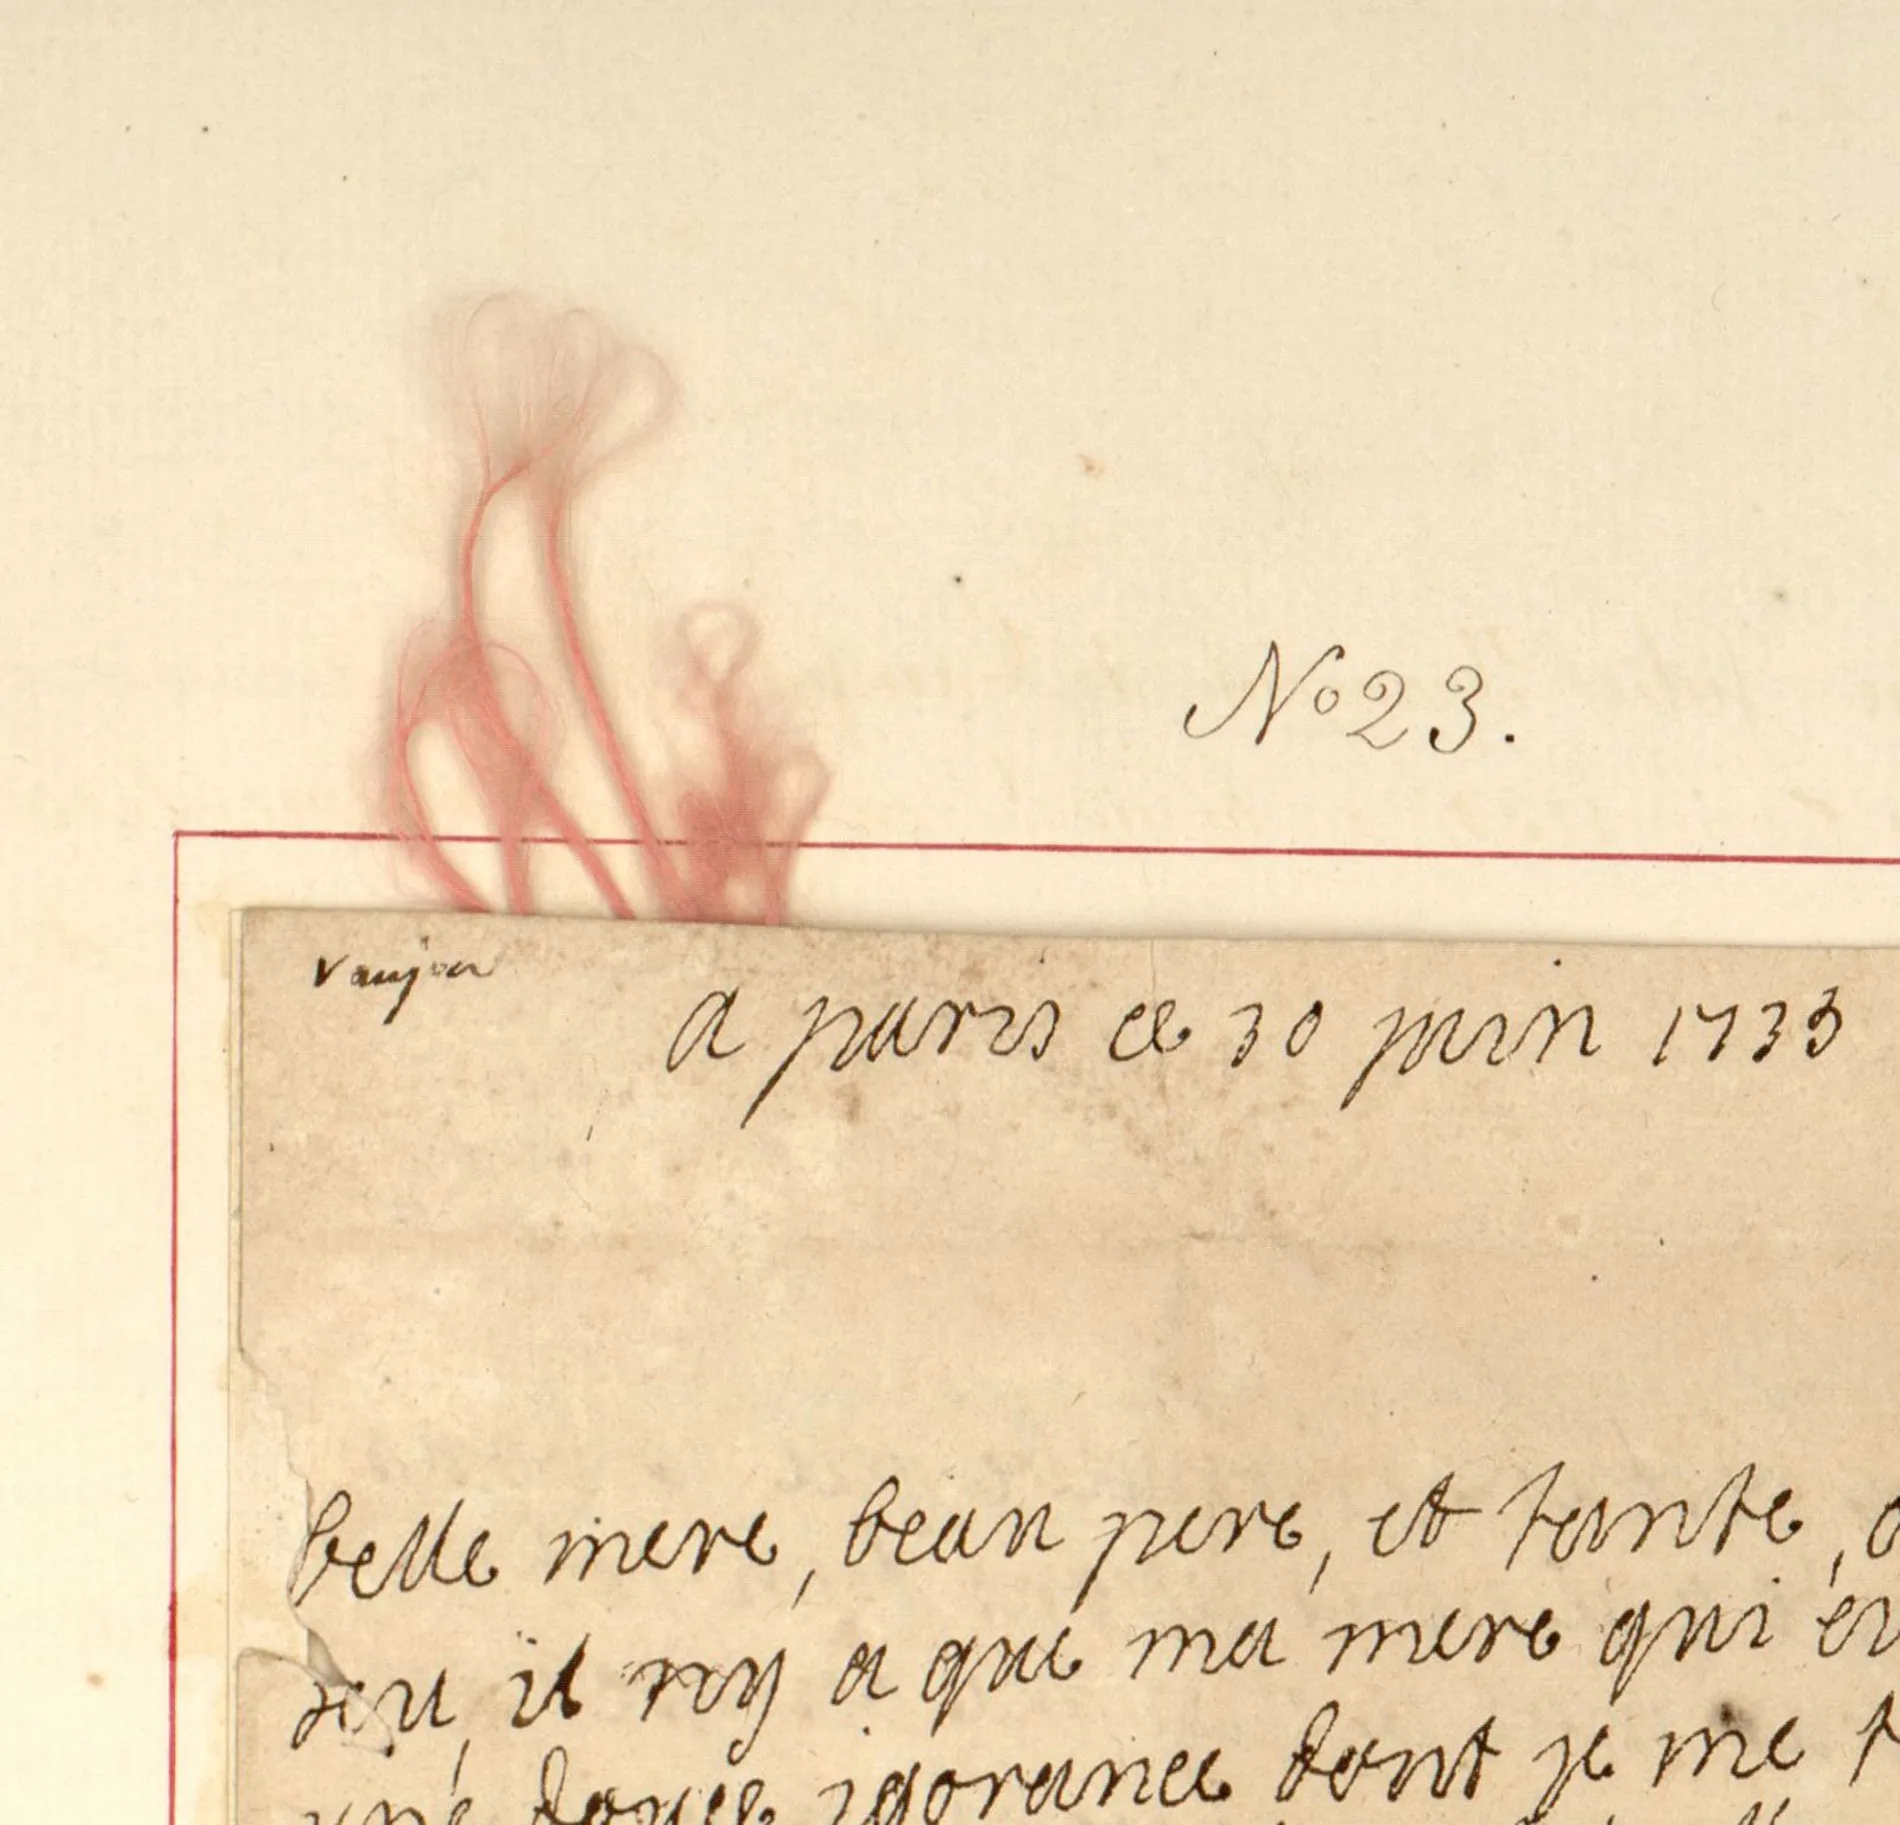 No 23.
Vaujour
a paris ce 30 juin 1733
belle mere, beau pere, et tante,
il ny a que ma mere qui en
une douce ignorance dont je me